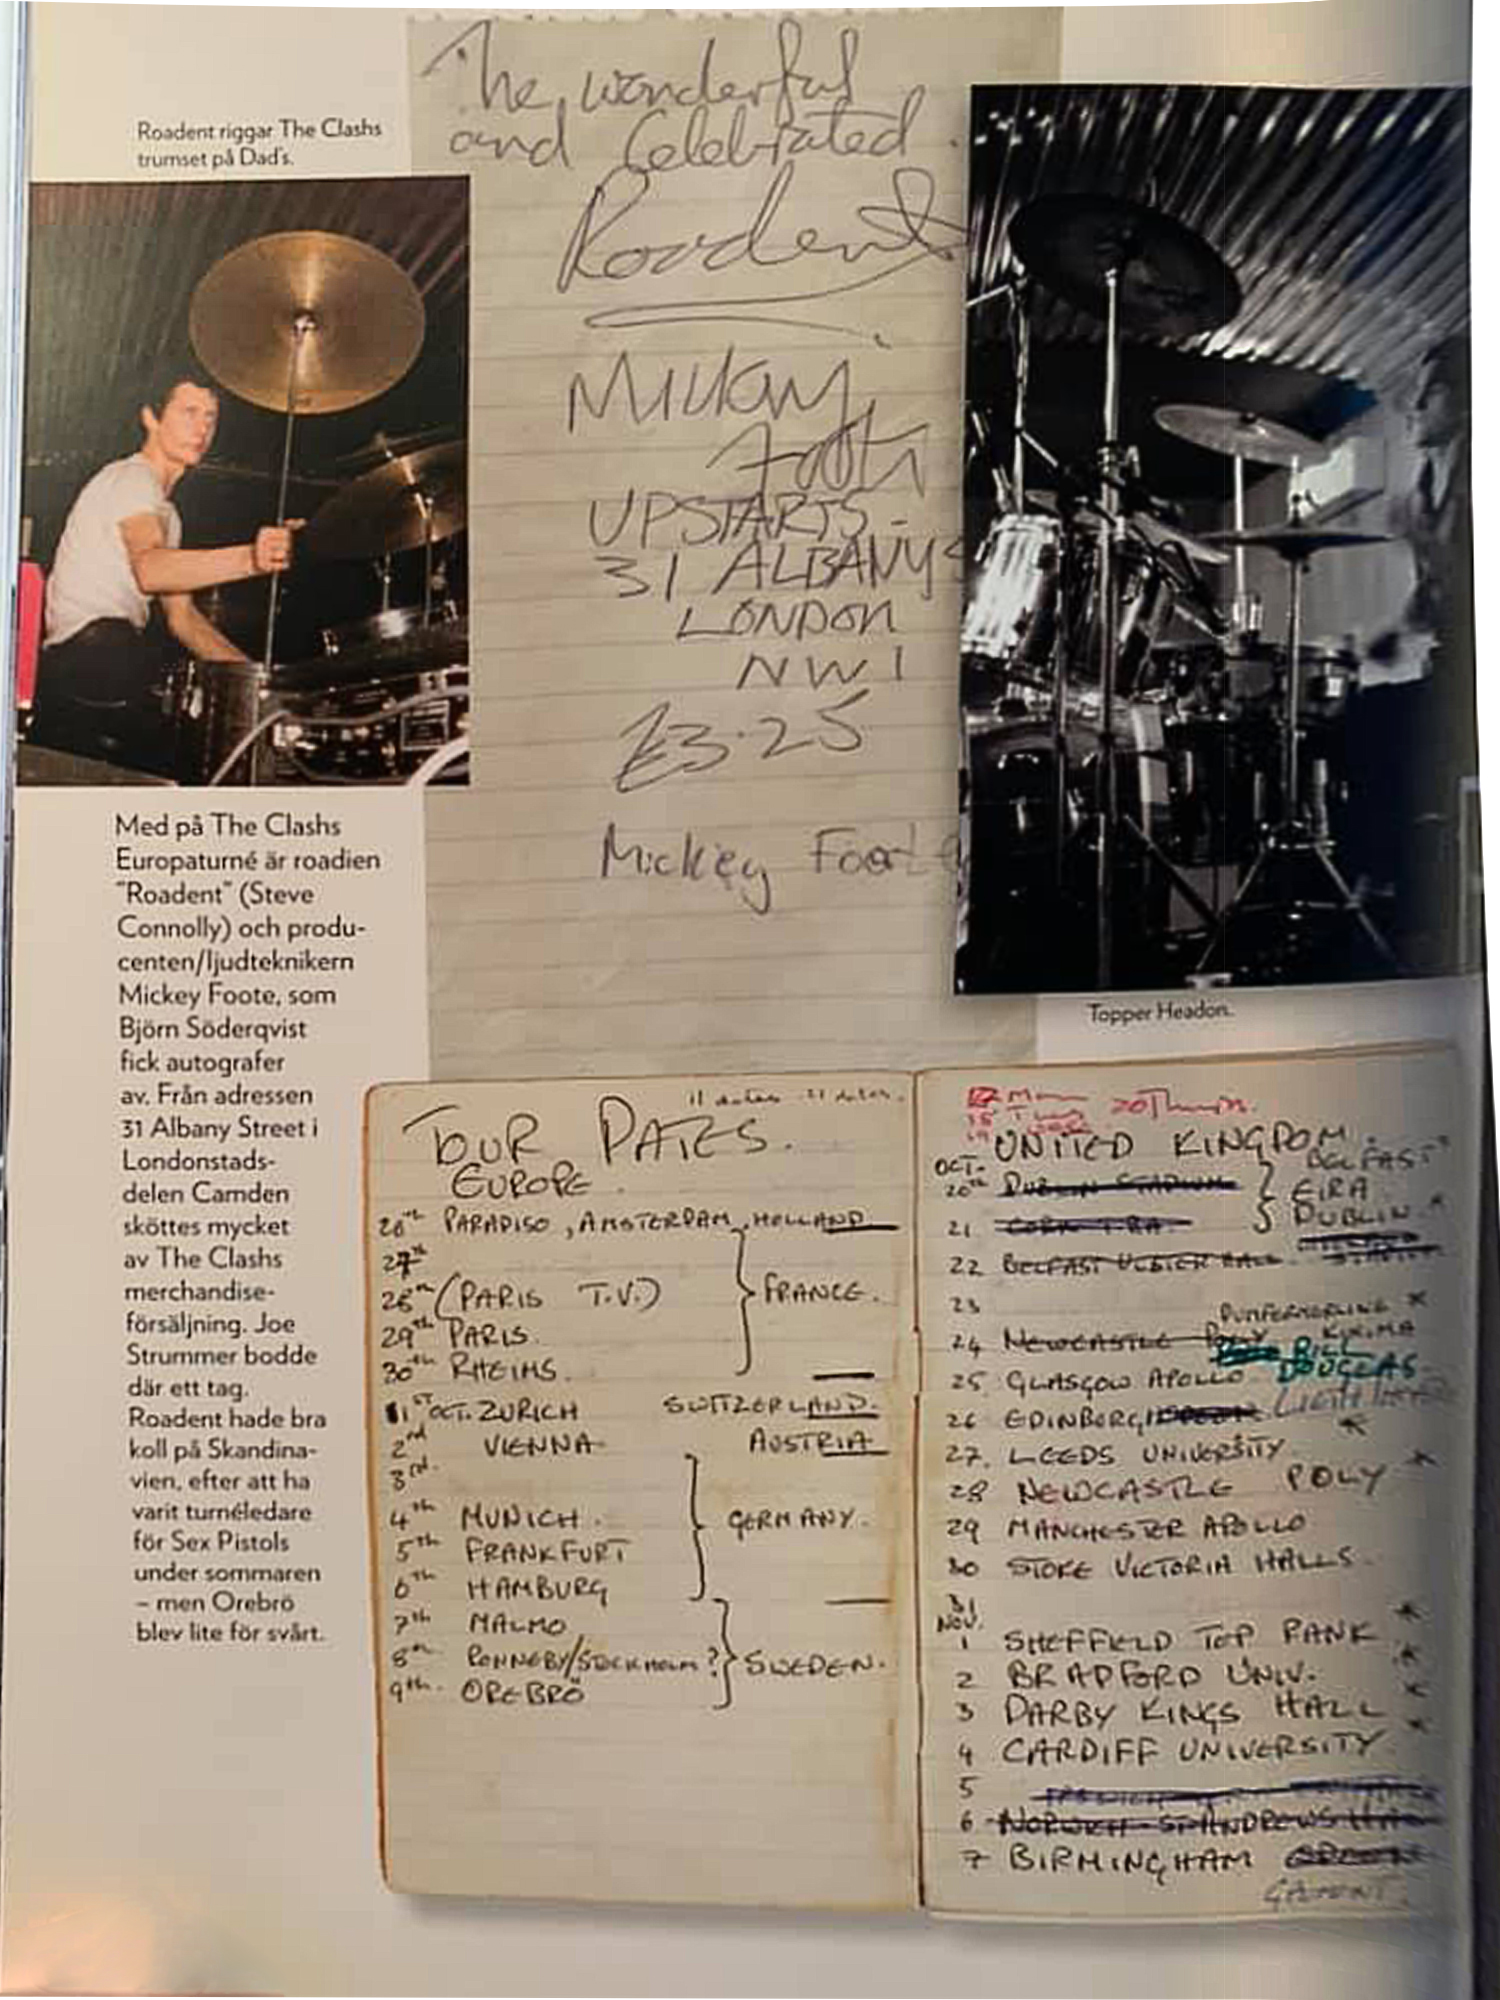 Roadent riggar The Clashs
trumset på Dad's.
The wonderful
and Celebrated
Roadent
Mickey
Foote
UPSTARTS -
31 ALBANY S
LONDON
NW1
£3.25
Mickey Foote
Topper Headon.
Med på The Clashs
Europaturné är roadien
"Roadent" (Steve
Connolly) och produ-
centen/ljudteknikern
Mickey Foote, som
Björn Söderqvist
fick autografer
av. Från adressen
31 Albany Street i
Londonstads-
delen Camden
sköttes mycket
av The Clashs
merchandise-
försäljning. Joe
Strummer bodde
där ett tag.
Roadent hade bra
koll på Skandina-
vien, efter att ha
varit turnéledare
för Sex Pistols
under sommaren
– men Örebro
blev lite för svårt.
11 dates 21 dates.
TOUR DATES.
EUROPE.
26th PARADISO, AMSTERDAM, HOLLAND
27th
28th (PARIS T.V.) FRANCE.
29th PARIS.
30th RHEIMS.
1st OCT. ZURICH SWITZERLAND.
2nd VIENNA AUSTRIA
3rd.
4th MUNICH. GERMANY.
5th FRANKFURT
6th HAMBURG
7th MALMO
8th RONNEBY/STOCKHOLM? SWEDEN.
9th. OREBRÖ
Mon
Tues 20 Thurs.
UNITED KINGDOM
OCT. BELFAST
20th DUBLIN STADIUM EIRA
21 DUBLIN
22 BELFAST ULSTER HALL
23 DUNFERMERLINE
24 NEWCASTLE POLY KINEMA
BILL
25 GLASGOW APOLLO DOUGLAS
26 EDINBURGH
27. LEEDS UNIVERSITY
28 NEWCASTLE POLY
29 MANCHESTER APOLLO
30 STOKE VICTORIA HALLS
31
NOV.
1 SHEFFIELD TOP RANK
2 BRADFORD UNIV.
3 DARBY KINGS HALL
4 CARDIFF UNIVERSITY
5
6 NORWICH ST ANDREWS HALL
7 BIRMINGHAM